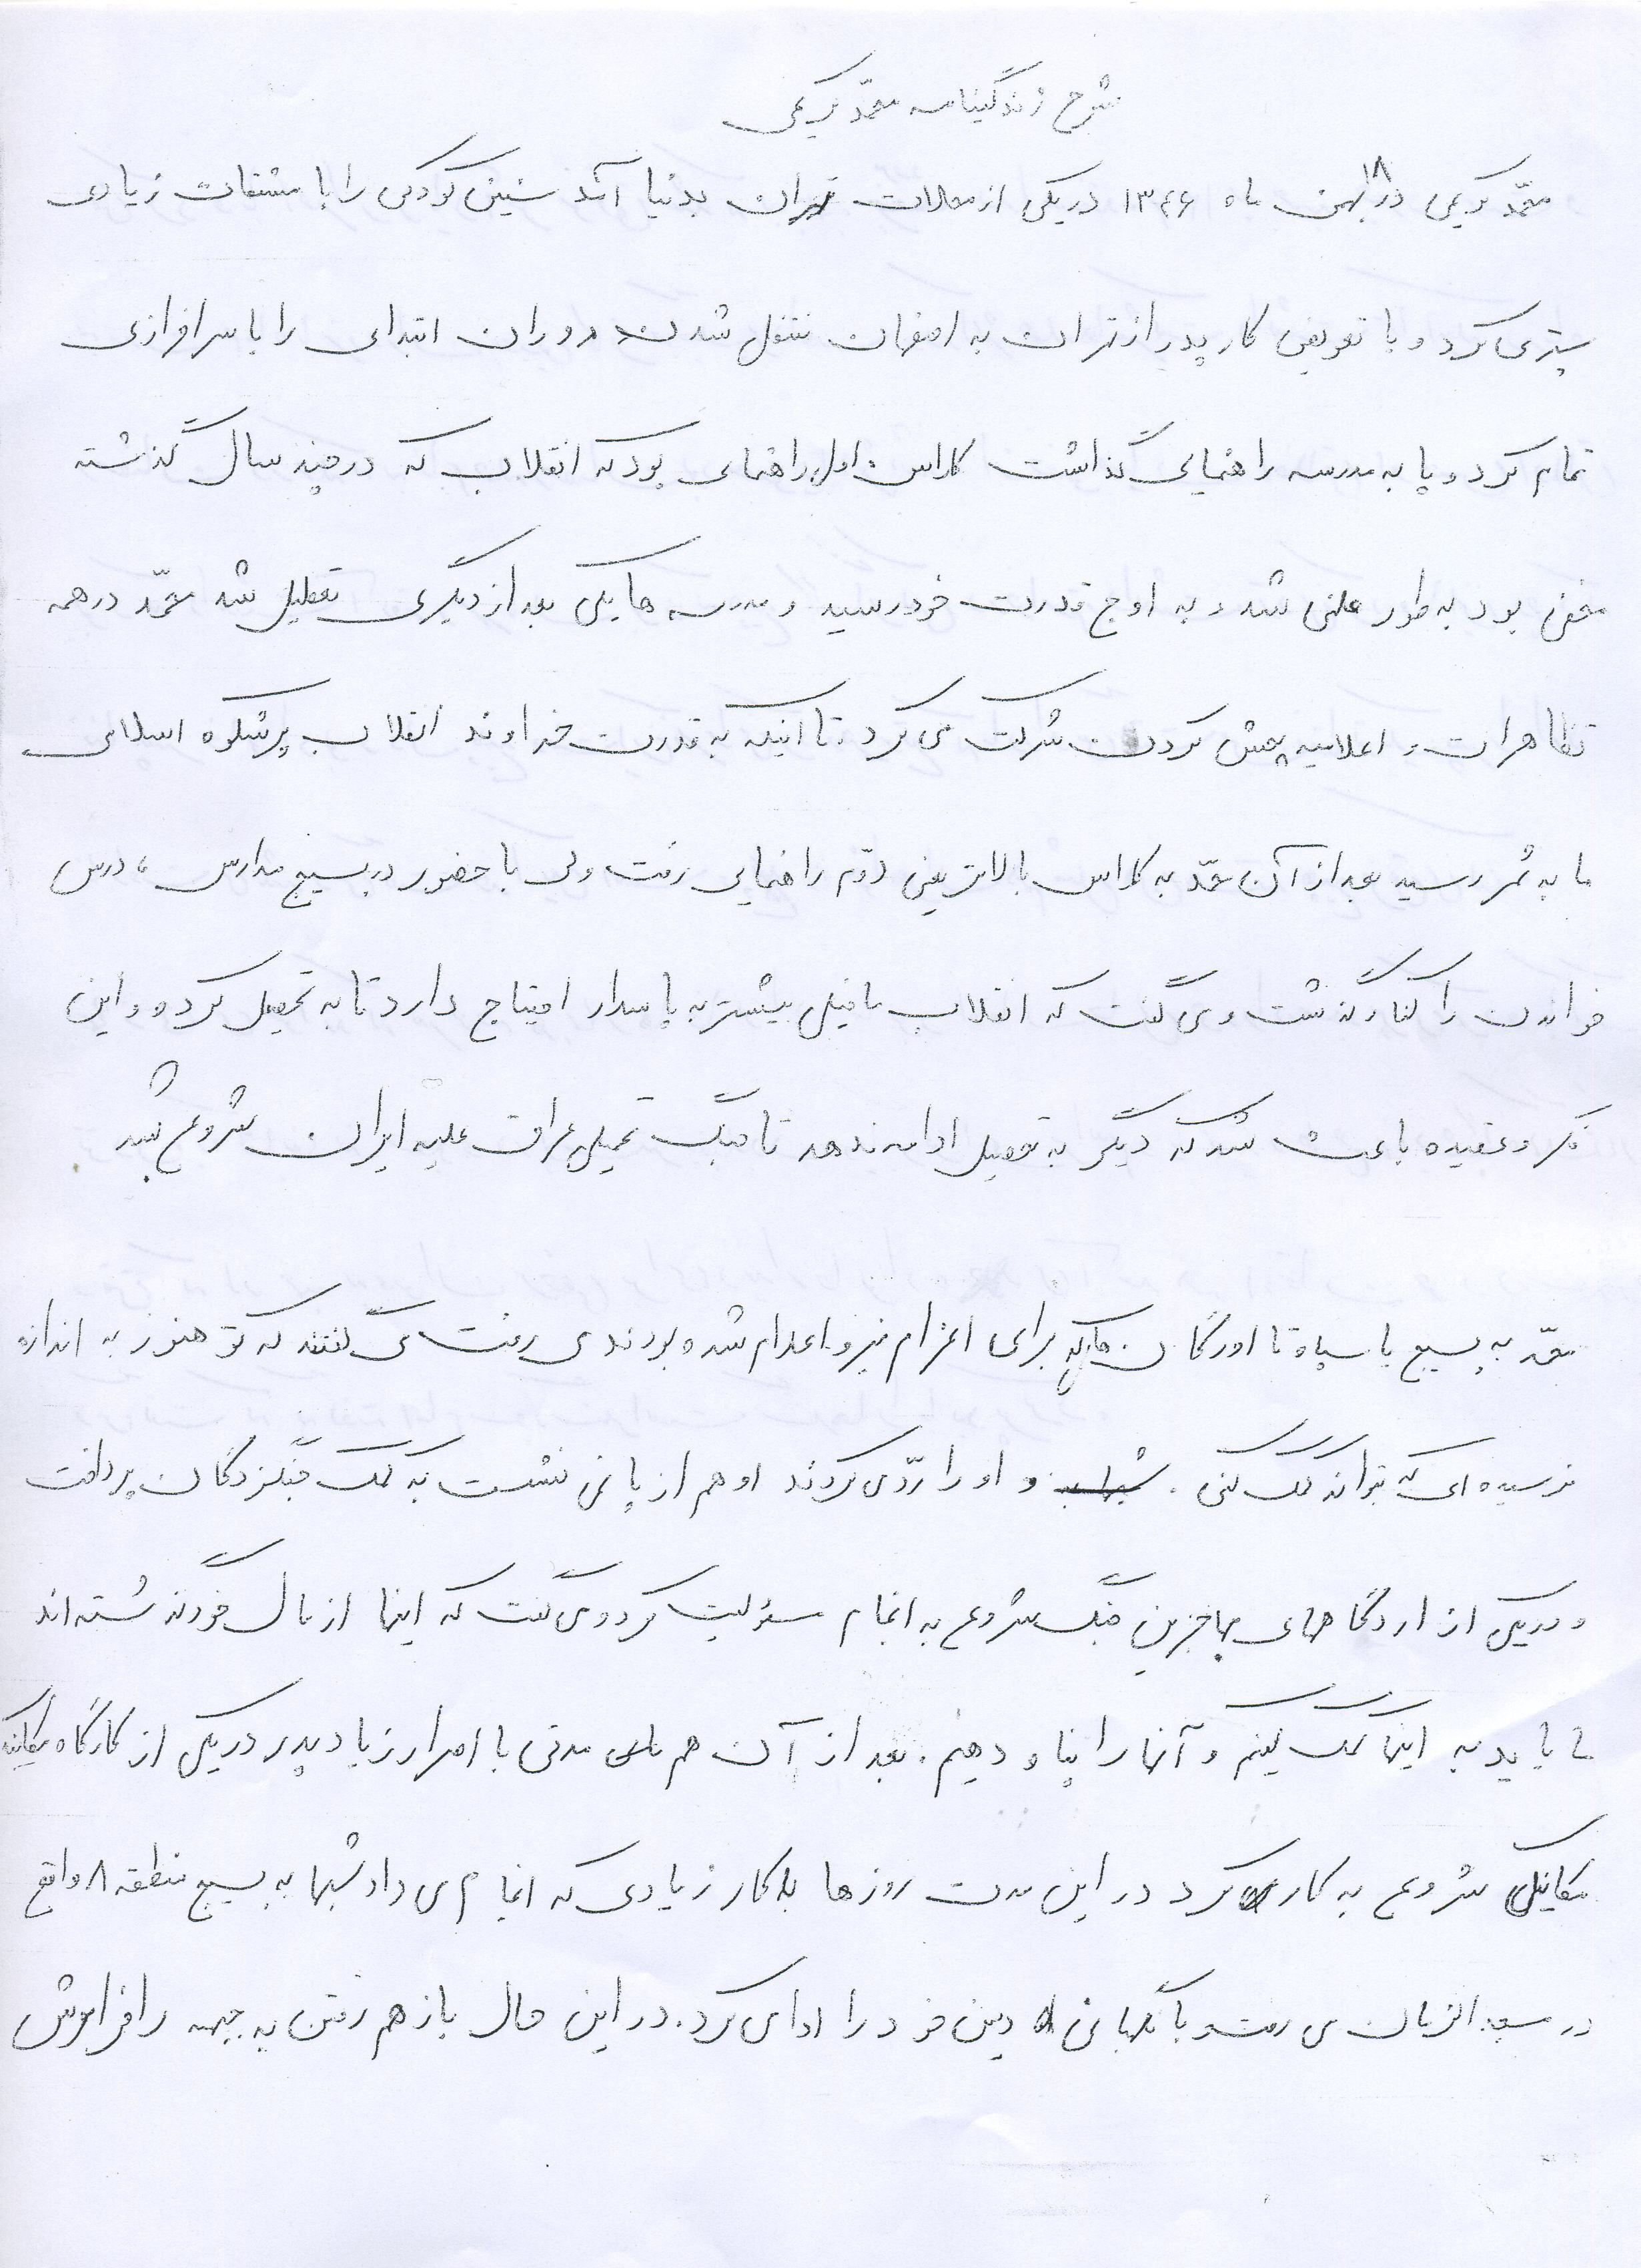 شرح زندگینامه محمّد کریمی
محمّد کریمی در ۱۸ بهمن ماه ۱۳۴۶ در یکی از محلات تهران بدنیا آمد سنین کودکی را با مشقات زیادی
سپری کرد و با تعویض کار پدر از تهران به اصفهان منتقل شدند دوران ابتدای را با سرافرازی
تمام کرد و پا به مدرسه راهنمایی گذاشت کلاس اول راهنمای بود که انقلاب که در چند سال گذشته
مخفی بود به طور علنی شد و به اوج قدرت خود رسید و مدرسه ها یکی بعد از دیگری تعطیل شد محمّد در همه
تظاهرات و اعلامیه پخش کردن شرکت می کرد. تا اینکه به قدرت خداوند انقلاب پرشکوه اسلامی
ما به ثمر رسید بعد از آن محمّد به کلاس بالاتر یعنی دوّم راهنمایی رفت ولی با حضور در بسیج مدارس ، درس
خواندن را کنار گذشت و می گفت که انقلاب ما خیلی بیشتر به پاسدار احتیاج دارد تا به تحصیل کرده و این
فکر و عقیده باعث شد که دیگر به تحصیل ادامه ندهد تا جنگ تحمیلی عراق علیه ایران شروع شد.
محمّد به بسیج یا سپاه تا اورگان هایکه برای اعزام نیرو اعلام شده بودند می رفت می گفتند که تو هنوز به اندازه
نرسیده ای که بتوانه کمک کنی . و او را ردّ می کردند او هم از پا نمی نشست به کمک جنگزدگان پرداخت
و در یکی از اردگاههای مهاجرین جنگ شروع به انجام مسئولیت کرد و می گفت که اینها از مال خود گذشته اند
ما باید به اینها کمک کنیم و آنها را پناه دهیم. بعد از آن هم مدتی با اصرار زیاد پدر در یکی از کارگاه
مکانیکی شروع به کار کرد در این مدت روزها با کار زیادی که انجام می داد شبها به بسیج منطقه ۸ واقع
در مسجد الزمان می رفت و با نگهبانی دین خود را ادا می کرد. در این حال باز هم رفتن به جبهه را فراموش